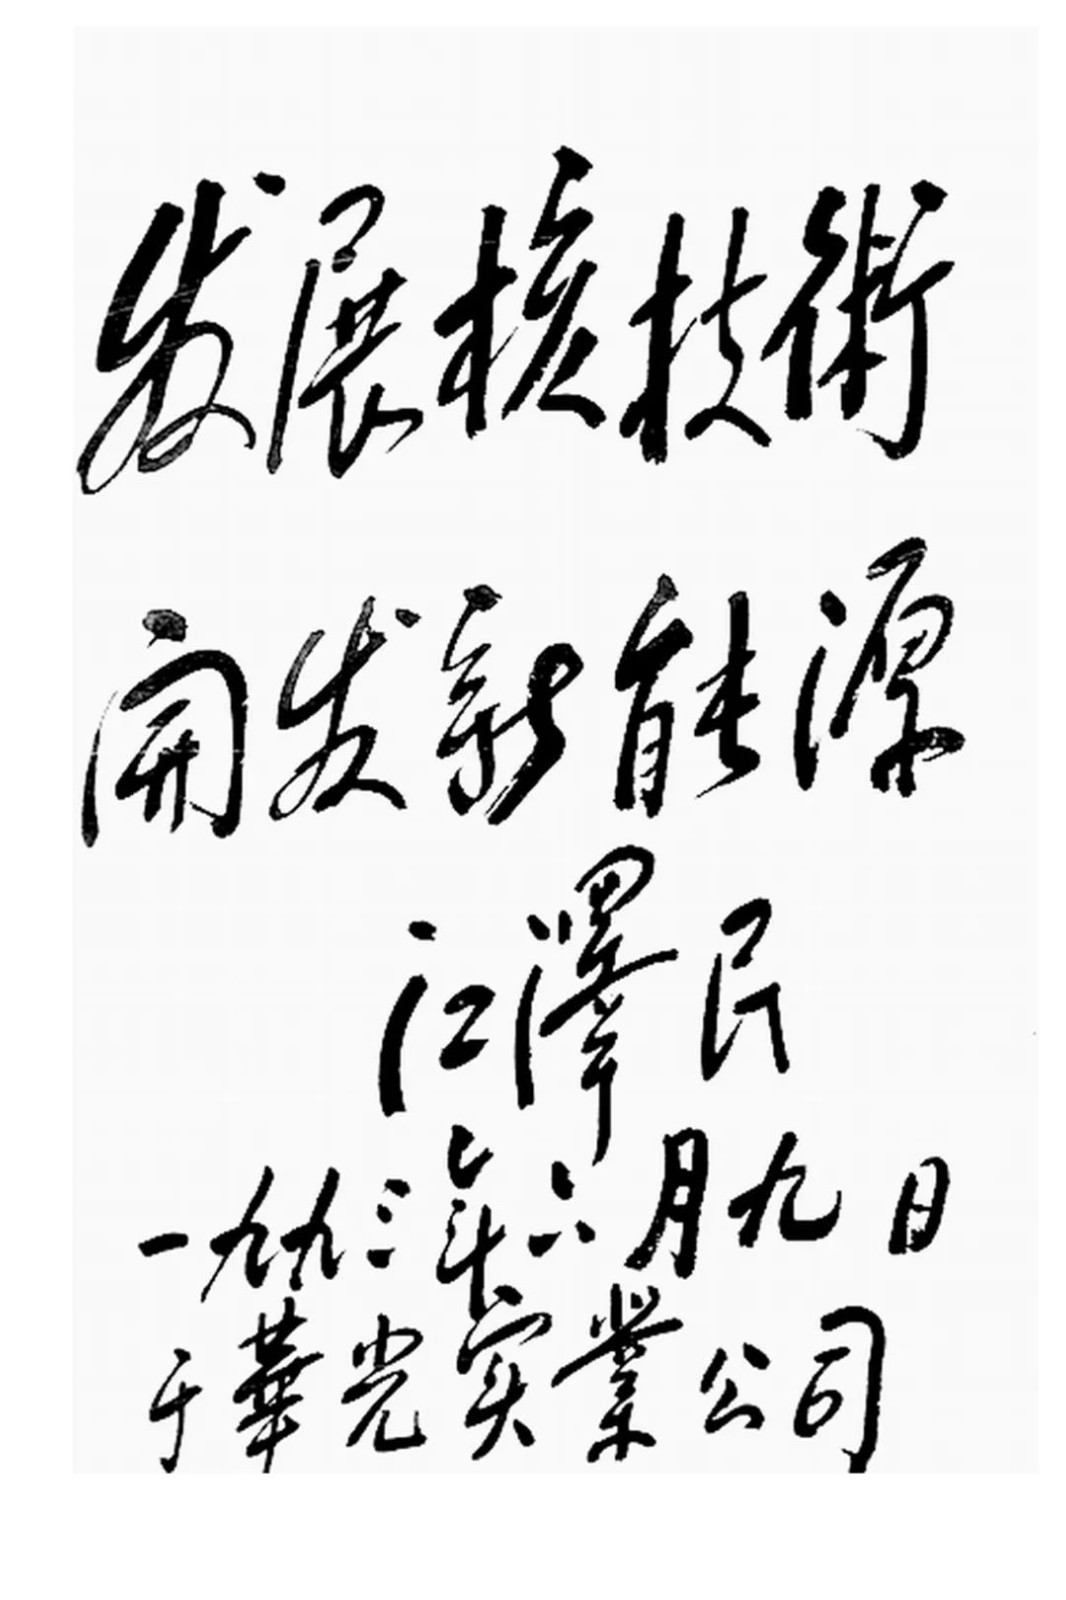 发展核技術
開发新能源
江澤民
一九九三年六月九日
于華光实業公司